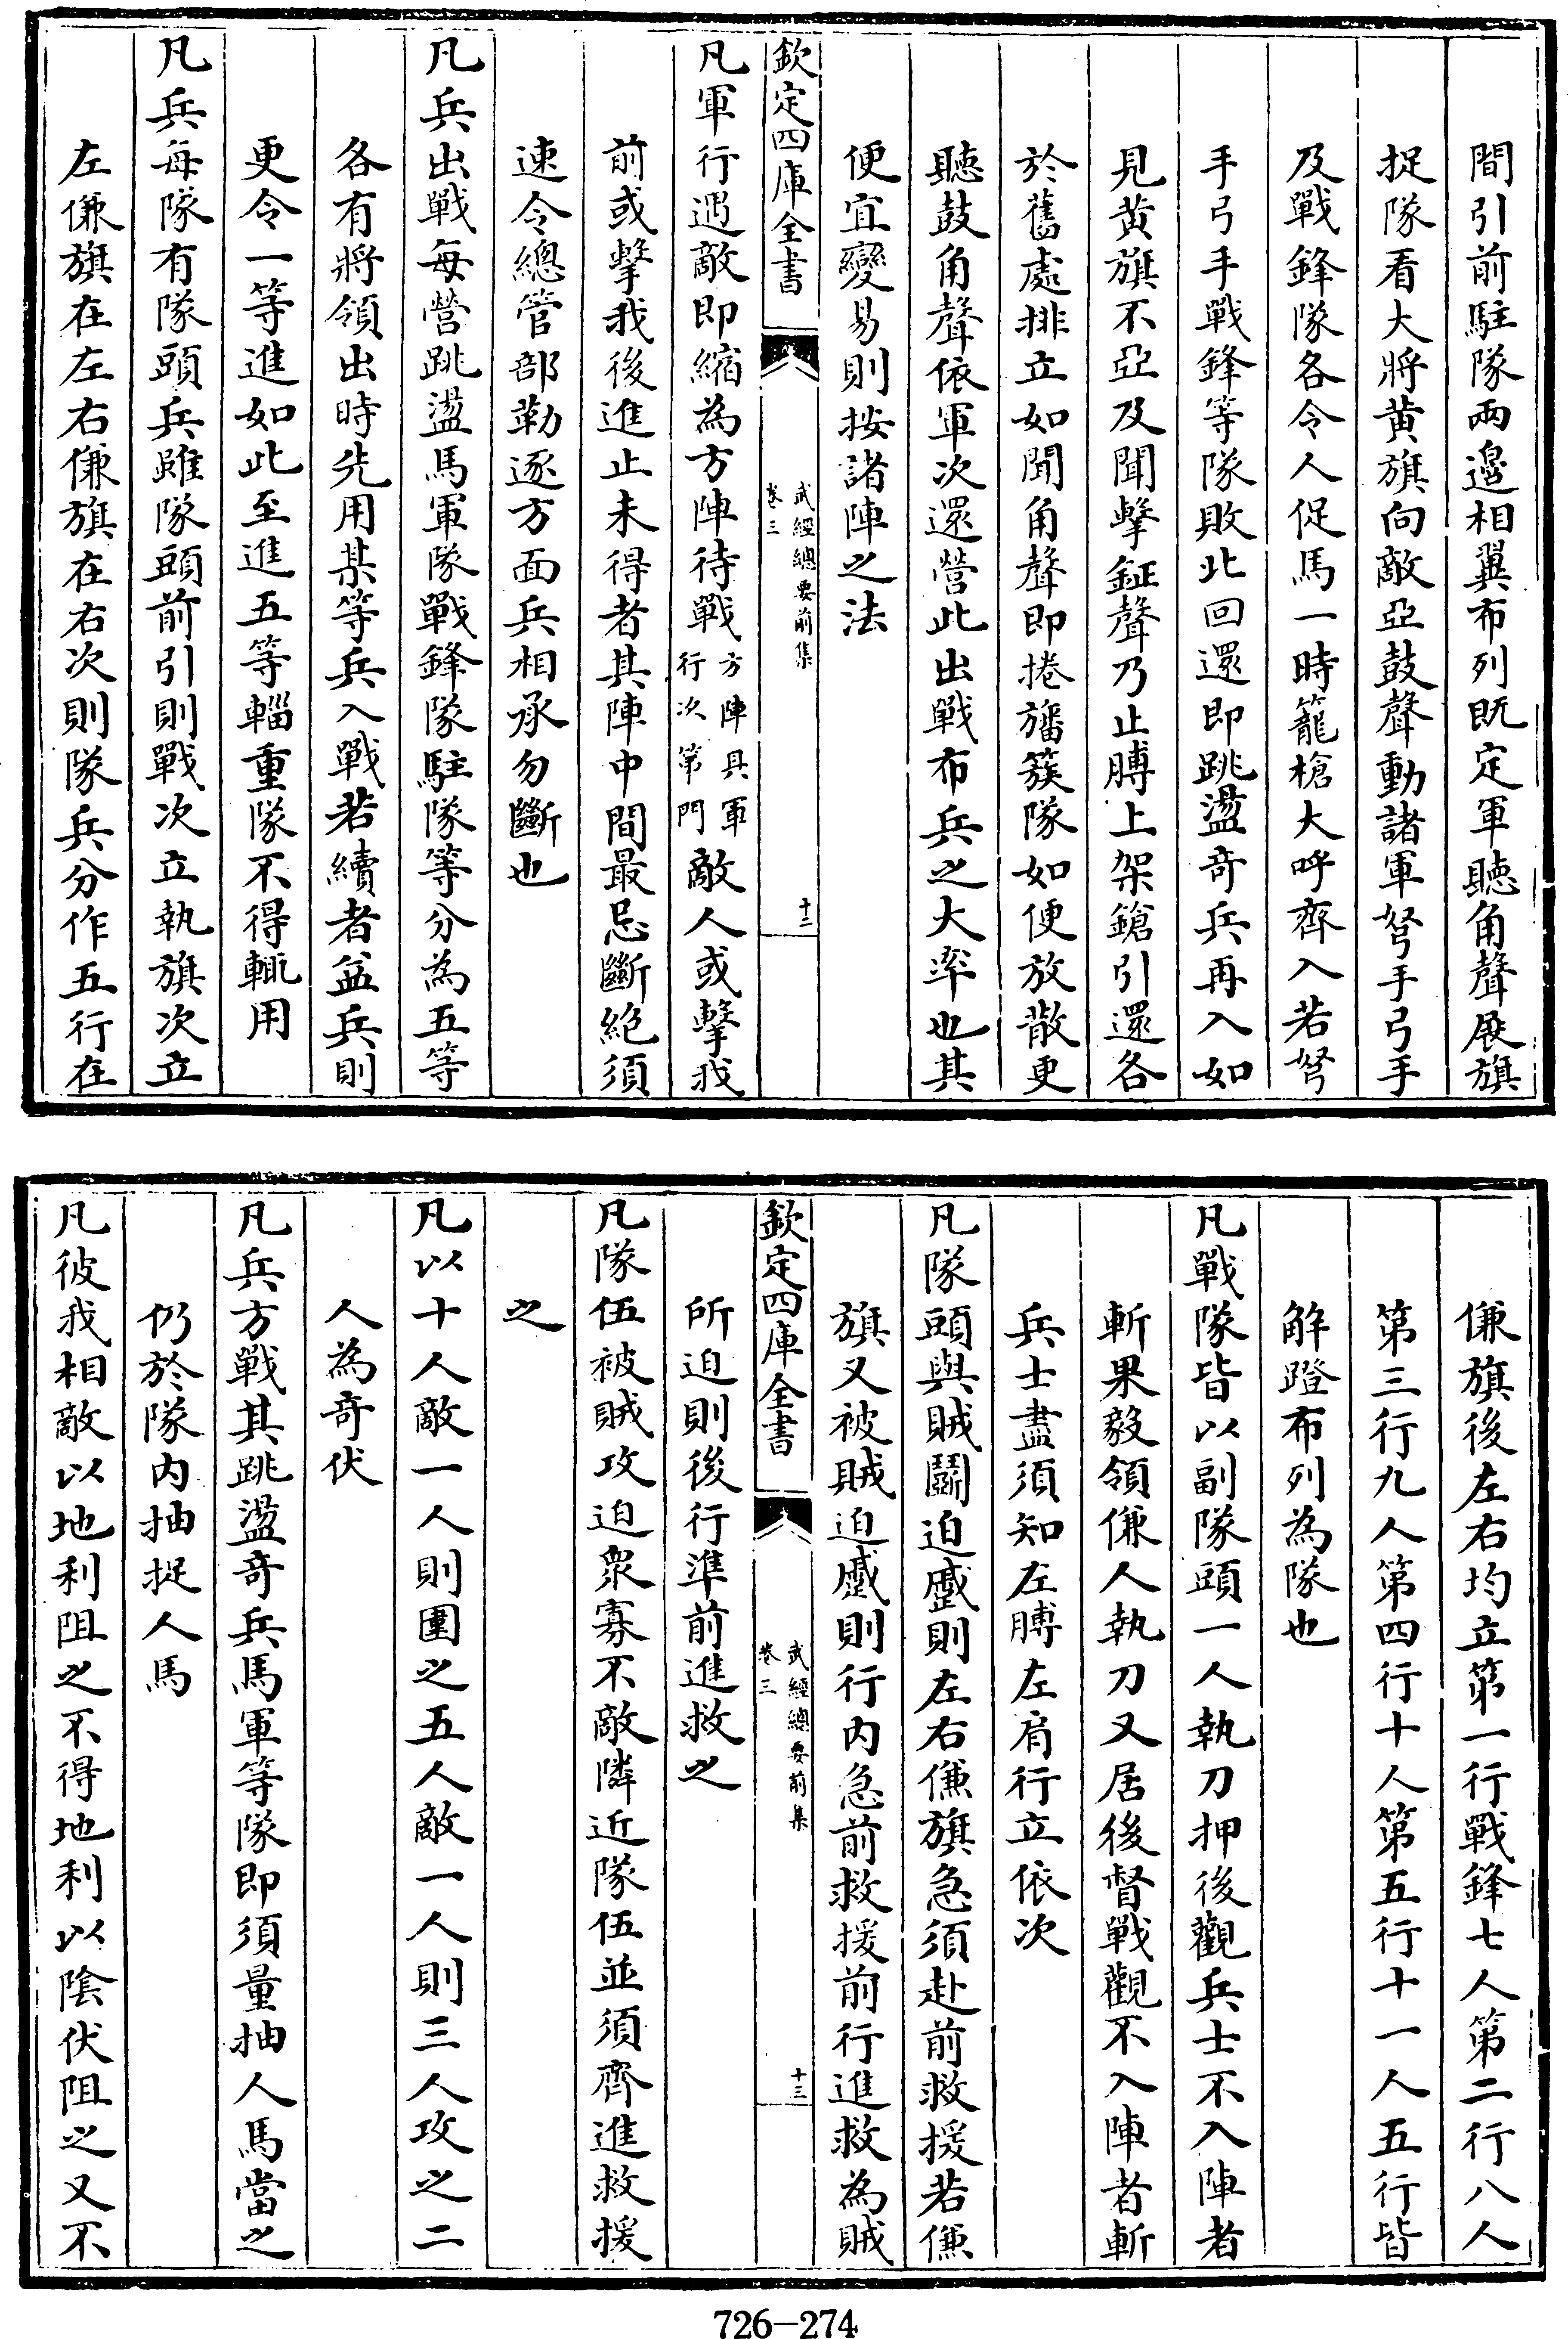 間引前駐隊兩邉相翼布列既定軍聽角聲展旗
捉隊看大將黄旗向敵亞鼓聲動諸軍弩手弓手
及戰鋒隊各令人促馬一時籠槍大呼齊入若弩
手弓手戰鋒等隊敗北回還即跳盪奇兵再入如
見黄旗不亞及聞擊鉦聲乃止膊上架鎗引還各
於舊處排立如聞角聲即捲旛簇隊如便放散更
聽鼓角聲依軍次還營此出戰布兵之大率也其
便宜變易則按諸陣之法
欽定四庫全書
武經總要前集
卷三
十二
凡軍行遇敵即縮為方陣待戰方陣具軍行次第門敵人或擊我
前或擊我後進止未得者其陣中間最忌斷絶須
速令總管部勒逐方面兵相承勿斷也
凡兵出戰每營跳盪馬軍隊戰鋒隊駐隊等分為五等
各有將領出時先用某等兵入戰若續者益兵則
更令一等進如此至進五等輜重隊不得輒用
凡兵每隊有隊頭兵雖隊頭前引則戰次立執旗次立
左傔旗在左右傔旗在右次則隊兵分作五行在
傔旗後左右均立第一行戰鋒七人第二行八人
第三行九人第四行十人第五行十一人五行皆
解蹬布列為隊也
凡戰隊皆以副隊頭一人執刀押後觀兵士不入陣者
斬果毅領傔人執刀又居後督戰觀不入陣者斬
兵士盡須知左膊左肩行立依次
凡隊頭與賊鬭迫蹙則左右傔旗急須赴前救援若傔
旗又被賊迫蹙則行内急前救援前行進救為賊
欽定四庫全書
武經總要前集
卷三
十三
所迫則後行準前進救之
凡隊伍被賊攻迫衆寡不敵隣近隊伍並須齊進救援
之
凡以十人敵一人則圍之五人敵一人則三人攻之二
人為奇伏
凡兵方戰其跳盪奇兵馬軍等隊即須量抽人馬當之
仍於隊内抽捉人馬
凡彼我相敵以地利阻之不得地利以陰伏阻之又不
726—274